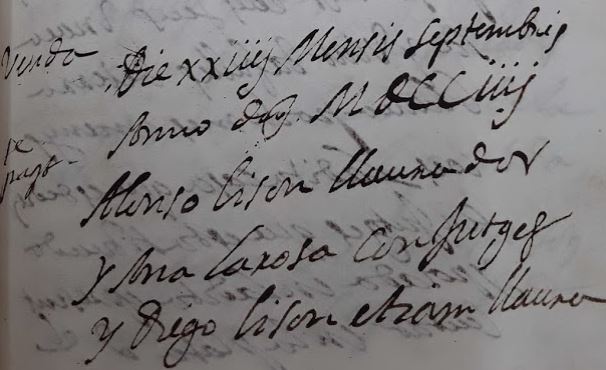 Venda
Die xxiiij Mensis Septembris
Anno dnj. MDCCiiij
Alonso Cison llaurador
y Ana Carosa Conjutges
y Diego Cison etiam llaura